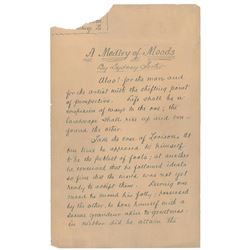 A Medley of Moods
By Sydney Porter
Alas! for the man and
for the artist with the shifting point
of perspective. Life shall be a
confusion of ways to the one; the
landscape shall rise up and con-
found the other.
Take the case of Lorison. At
one time he appeared to himself
to be the feeblest of fools; at another
he conceived that he followed ideals
so fine that the world was not yet
ready to accept them. During one
mood he cursed his folly; possessed
by the other, he bore himself with a
serene grandeur akin to greatness:
in neither did he attain the